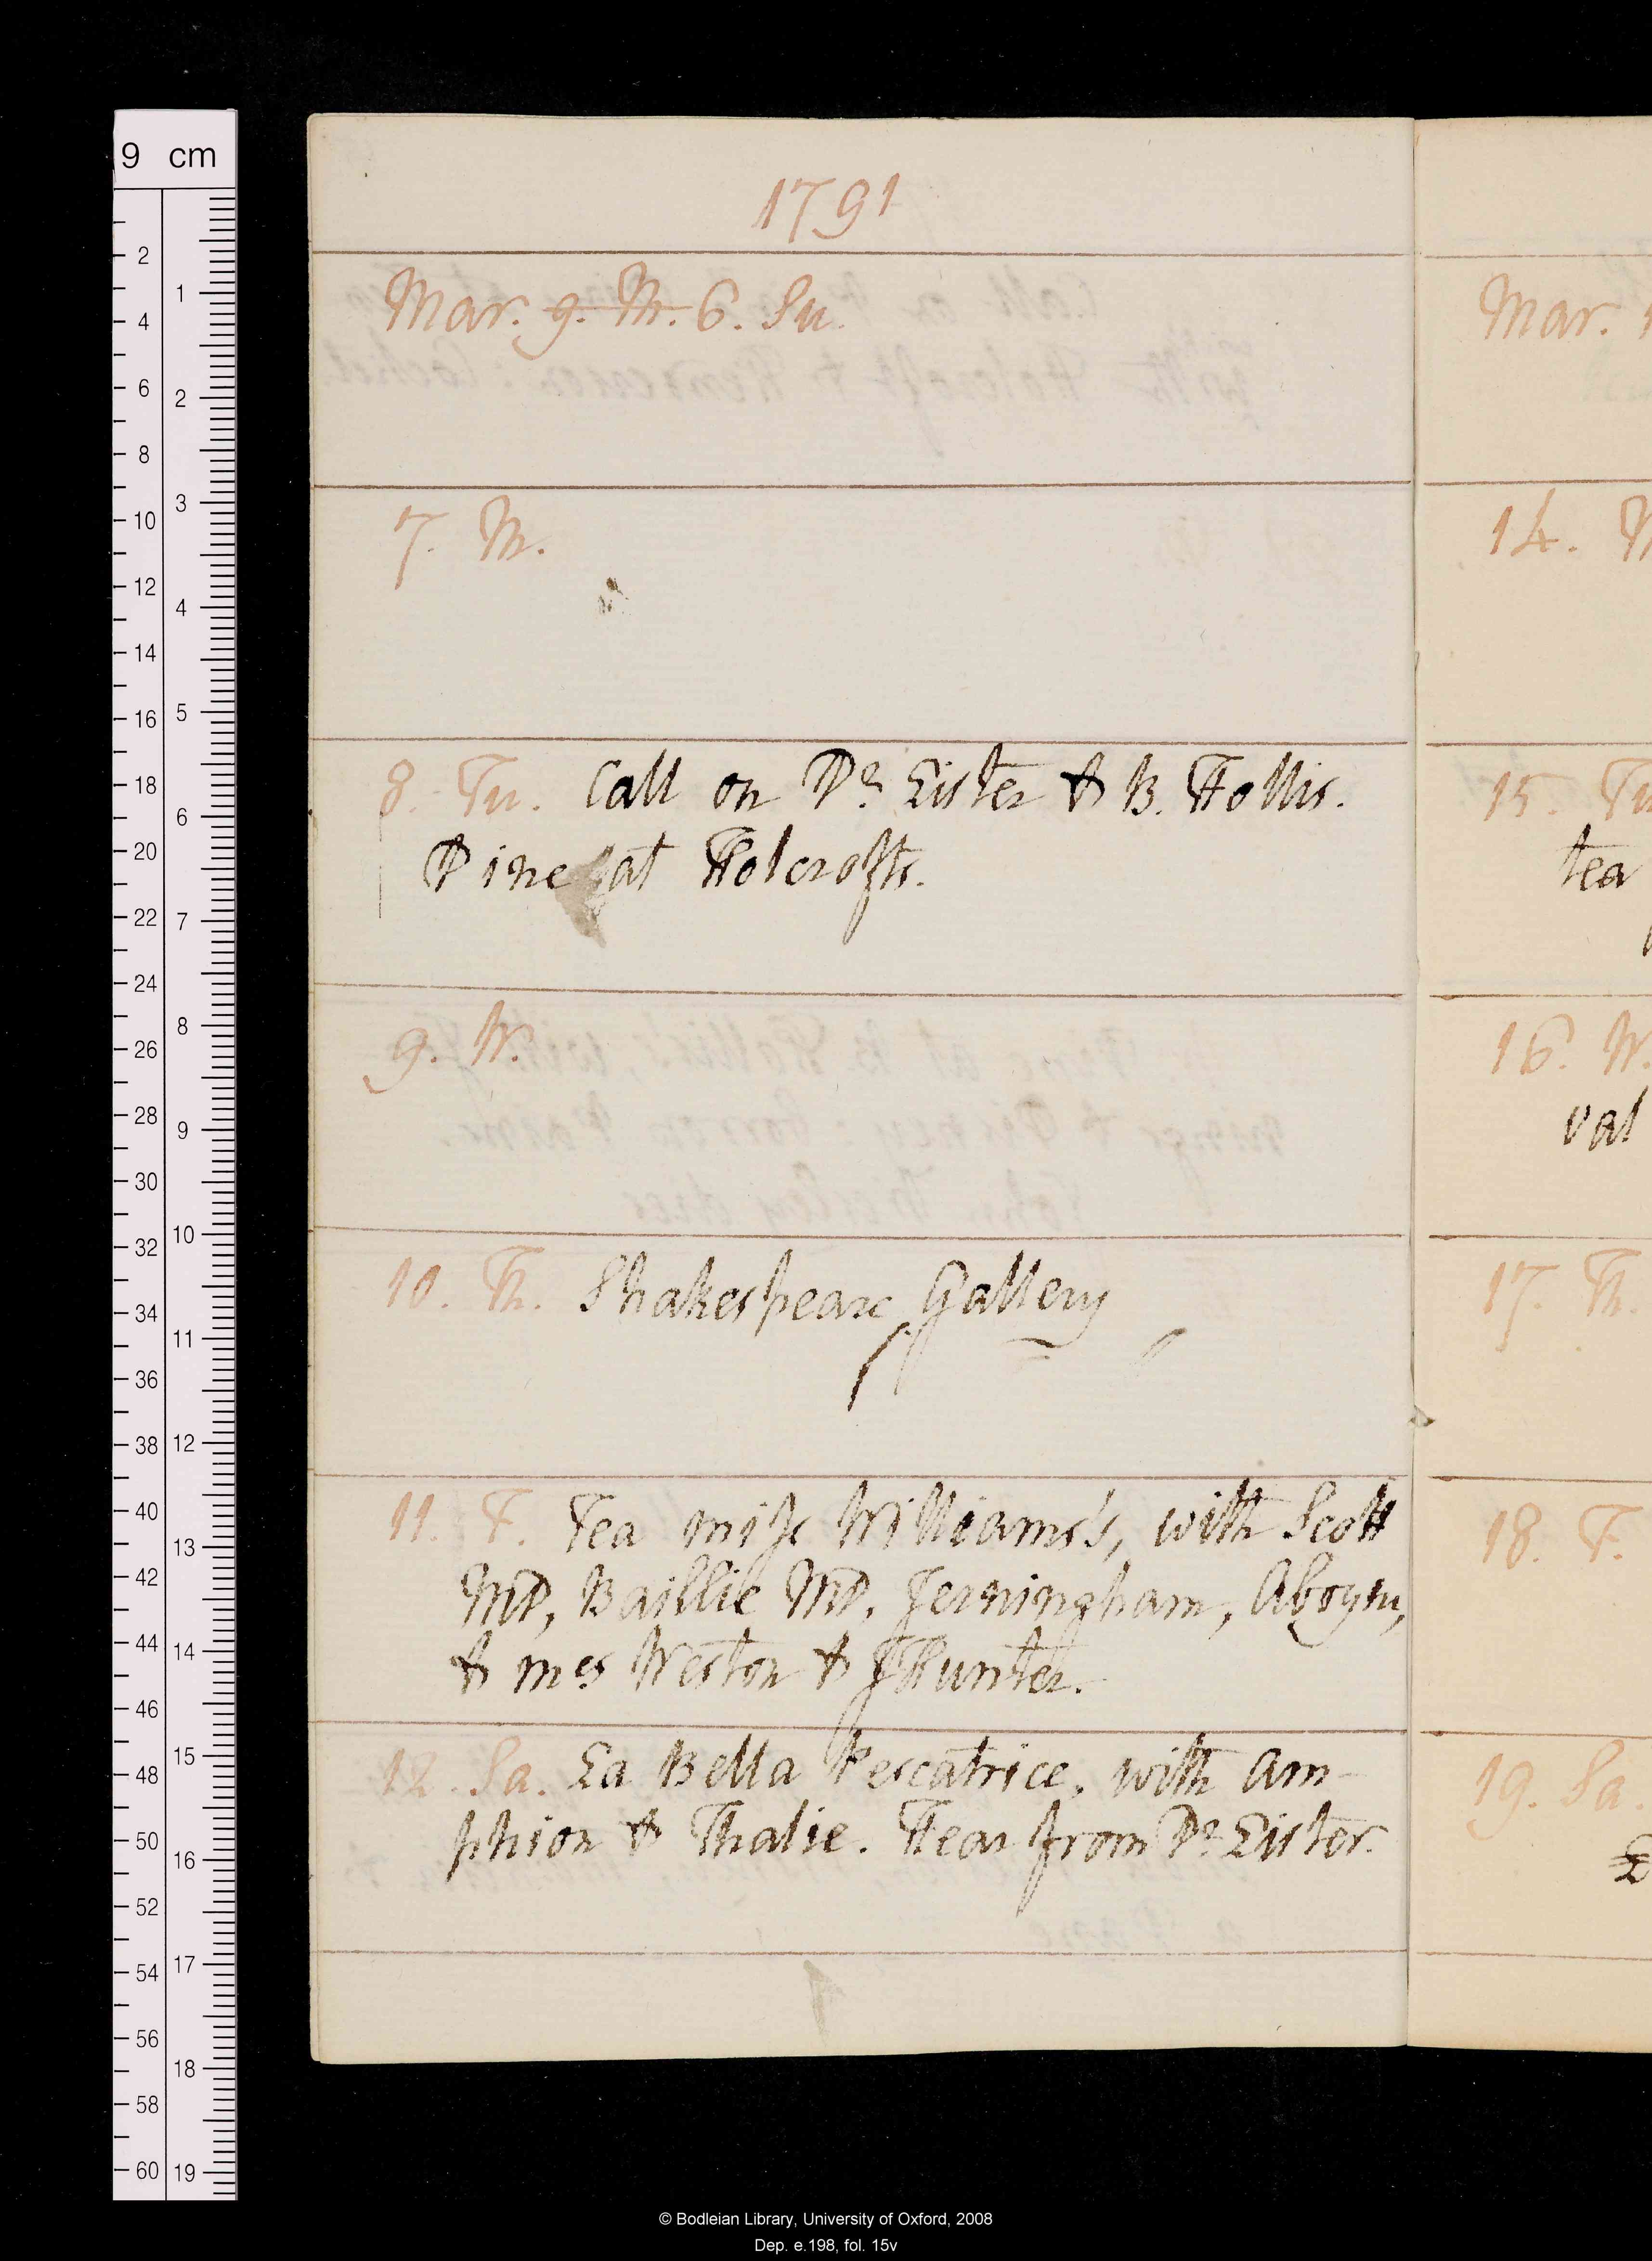 1791
Mar. 9. M. 6. Su.
7. M.
8. Tu. Call on Dr Lister & B. Hollis.
Dine at Holcrofts.
9. W.
10. Th. Shakespeare Gallery
11. F. Tea miss Williams's, with Scott
MD, Baillie MD, Jerningham, Aboyn,
& mes Weston & JHunter.
12. Sa. La Bella Pescatrice, with Am-
phion & Thalie. Hear from Dr Lister.
Mar. 1
14. M
15. Tu
tea
16. W.
val
17. Th.
18. F.
19. Sa.
9 cm
2
4
6
8
10
12
14
16
18
20
22
24
26
28
30
32
34
36
38
40
42
44
46
48
50
52
54
56
58
60
1
2
3
4
5
6
7
8
9
10
11
12
13
14
15
16
17
18
19
© Bodleian Library, University of Oxford, 2008
Dep. e.198, fol. 15v